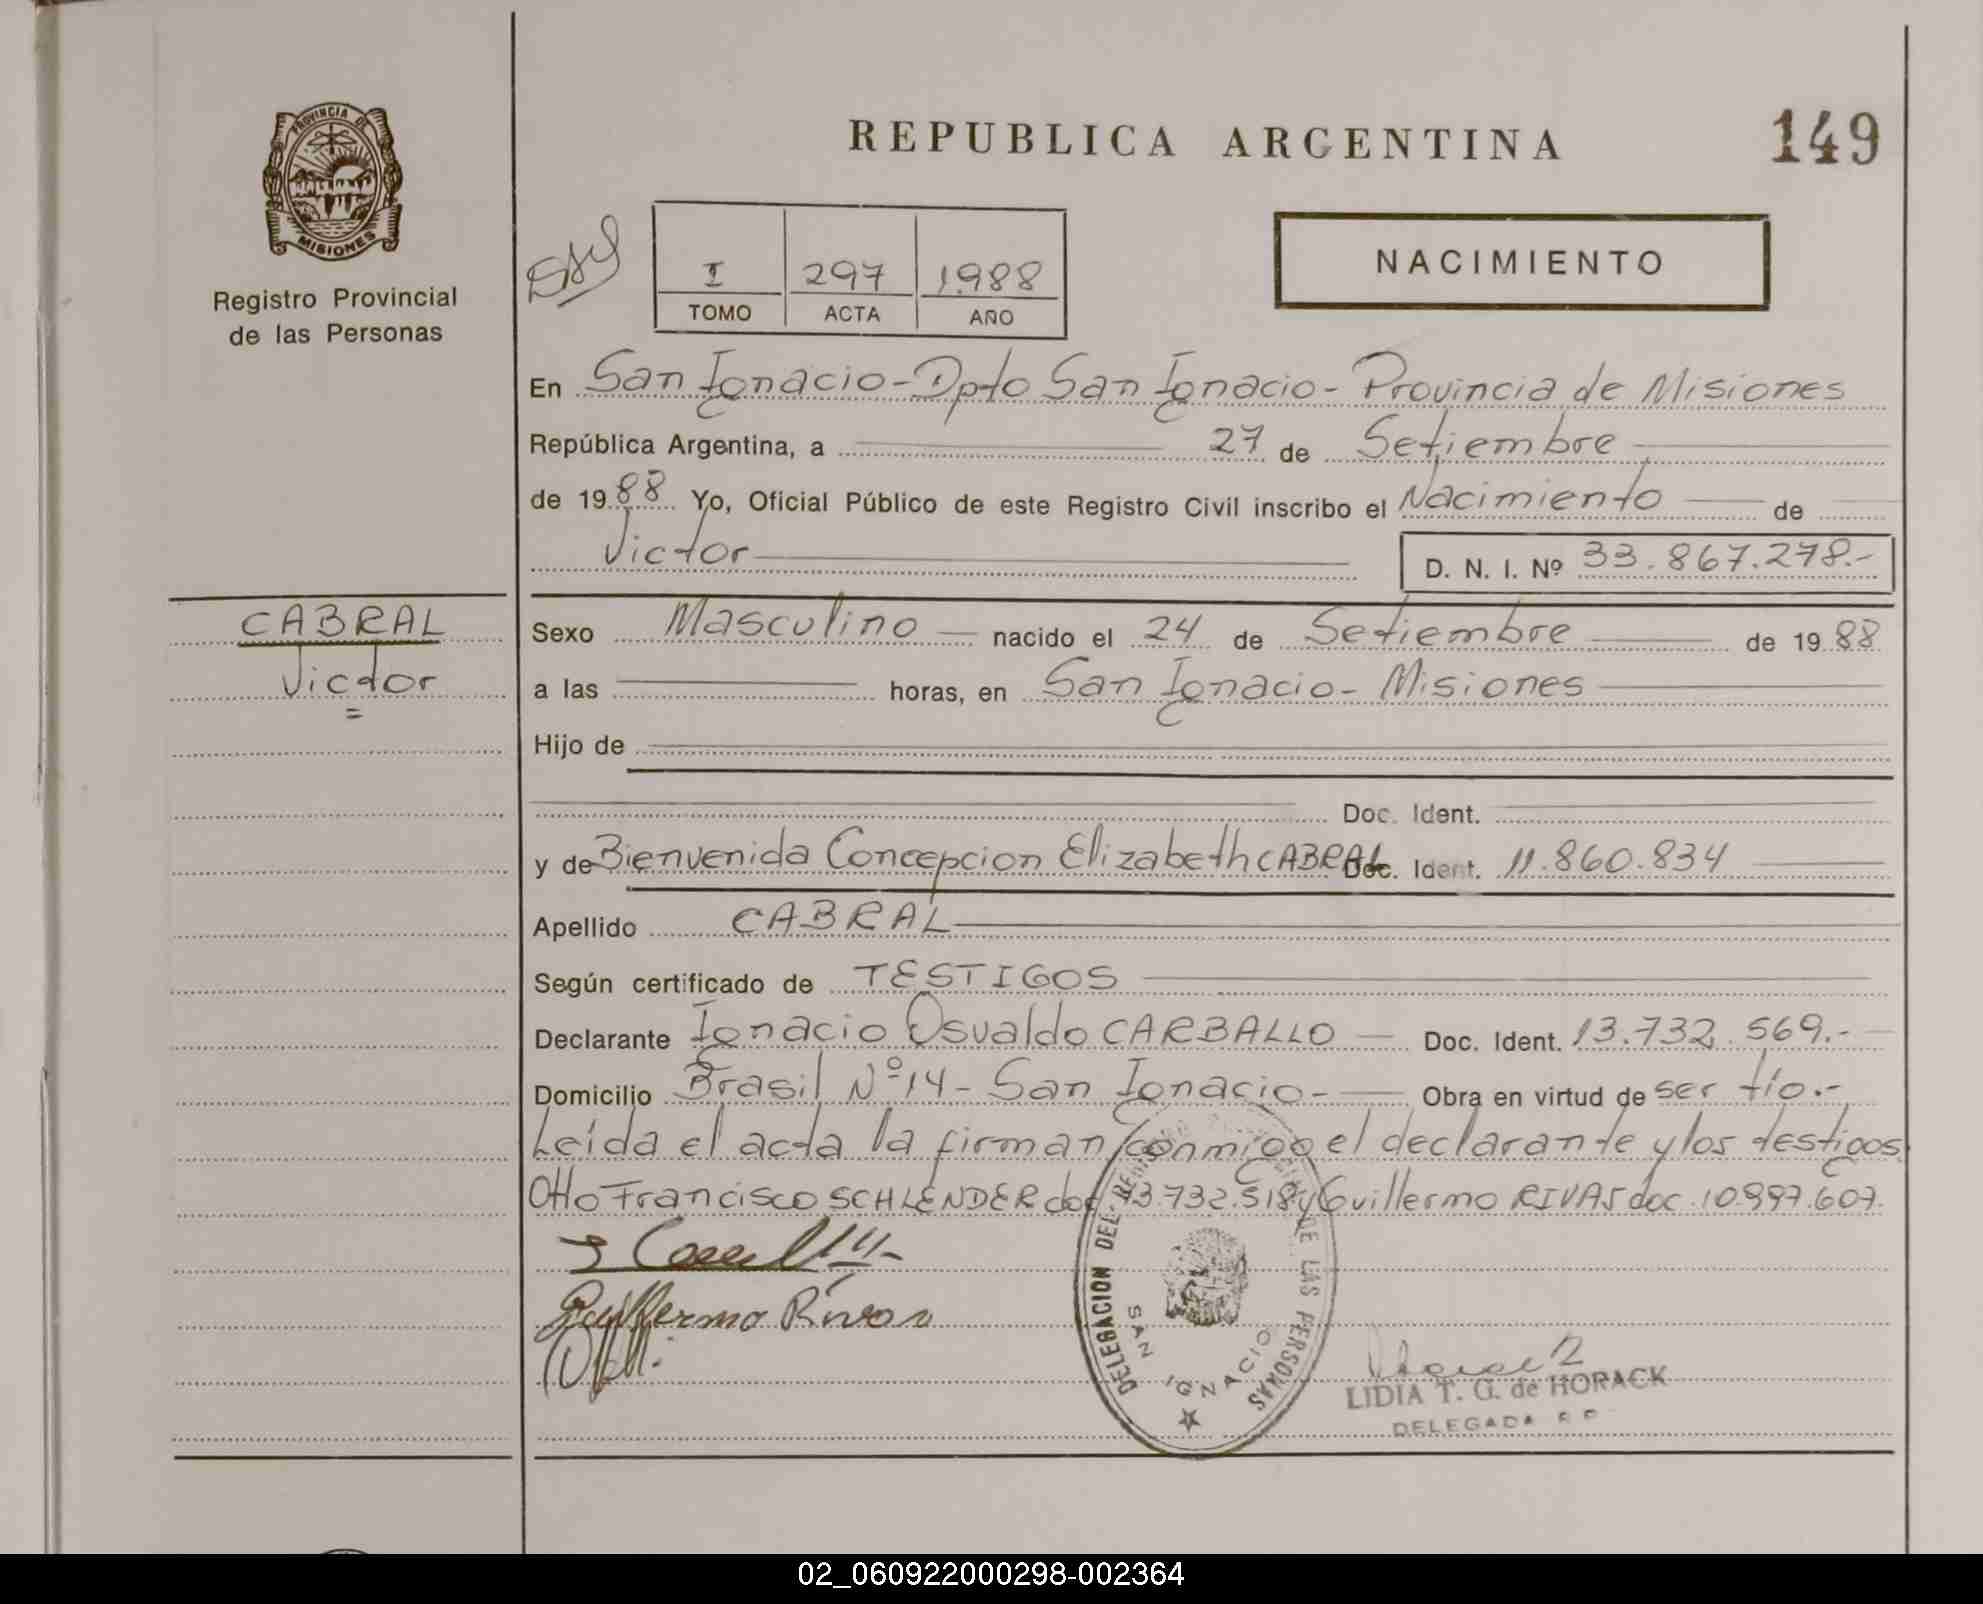 PROVINCIA DE
MISIONES
Registro Provincial
de las Personas
REPUBLICA ARGENTINA
149
I 297 1988
TOMO ACTA AÑO
NACIMIENTO
En San Ignacio - Dpto San Ignacio - Provincia de Misiones
República Argentina, a 27 de Setiembre
de 1988 Yo, Oficial Público de este Registro Civil inscribo el Nacimiento de
Victor D. N. I. Nº 33.867.278.-
CABRAL
Victor
=
Sexo Masculino nacido el 24 de Setiembre de 1988
a las horas, en San Ignacio - Misiones
Hijo de
Doc. Ident.
y de Bienvenida Concepcion Elizabeth CABRAL Doc. Ident. 11.860.834
Apellido CABRAL
Según certificado de TESTIGOS
Declarante Ignacio Osvaldo CARBALLO Doc. Ident. 13.732.569.-
Domicilio Brasil Nº 14 - San Ignacio - Obra en virtud de ser tío.-
Leída el acta la firman conmigo el declarante y los testigos
Otto Francisco SCHLENDER doc 13.732.518 y Guillermo RIVAS doc. 10.997.607.
Guillermo Rivas
DELEGACION DEL REGISTRO DE LAS PERSONAS
SAN IGNACIO
LIDIA T. G. de HORACK
DELEGADA R P
02_060922000298-002364